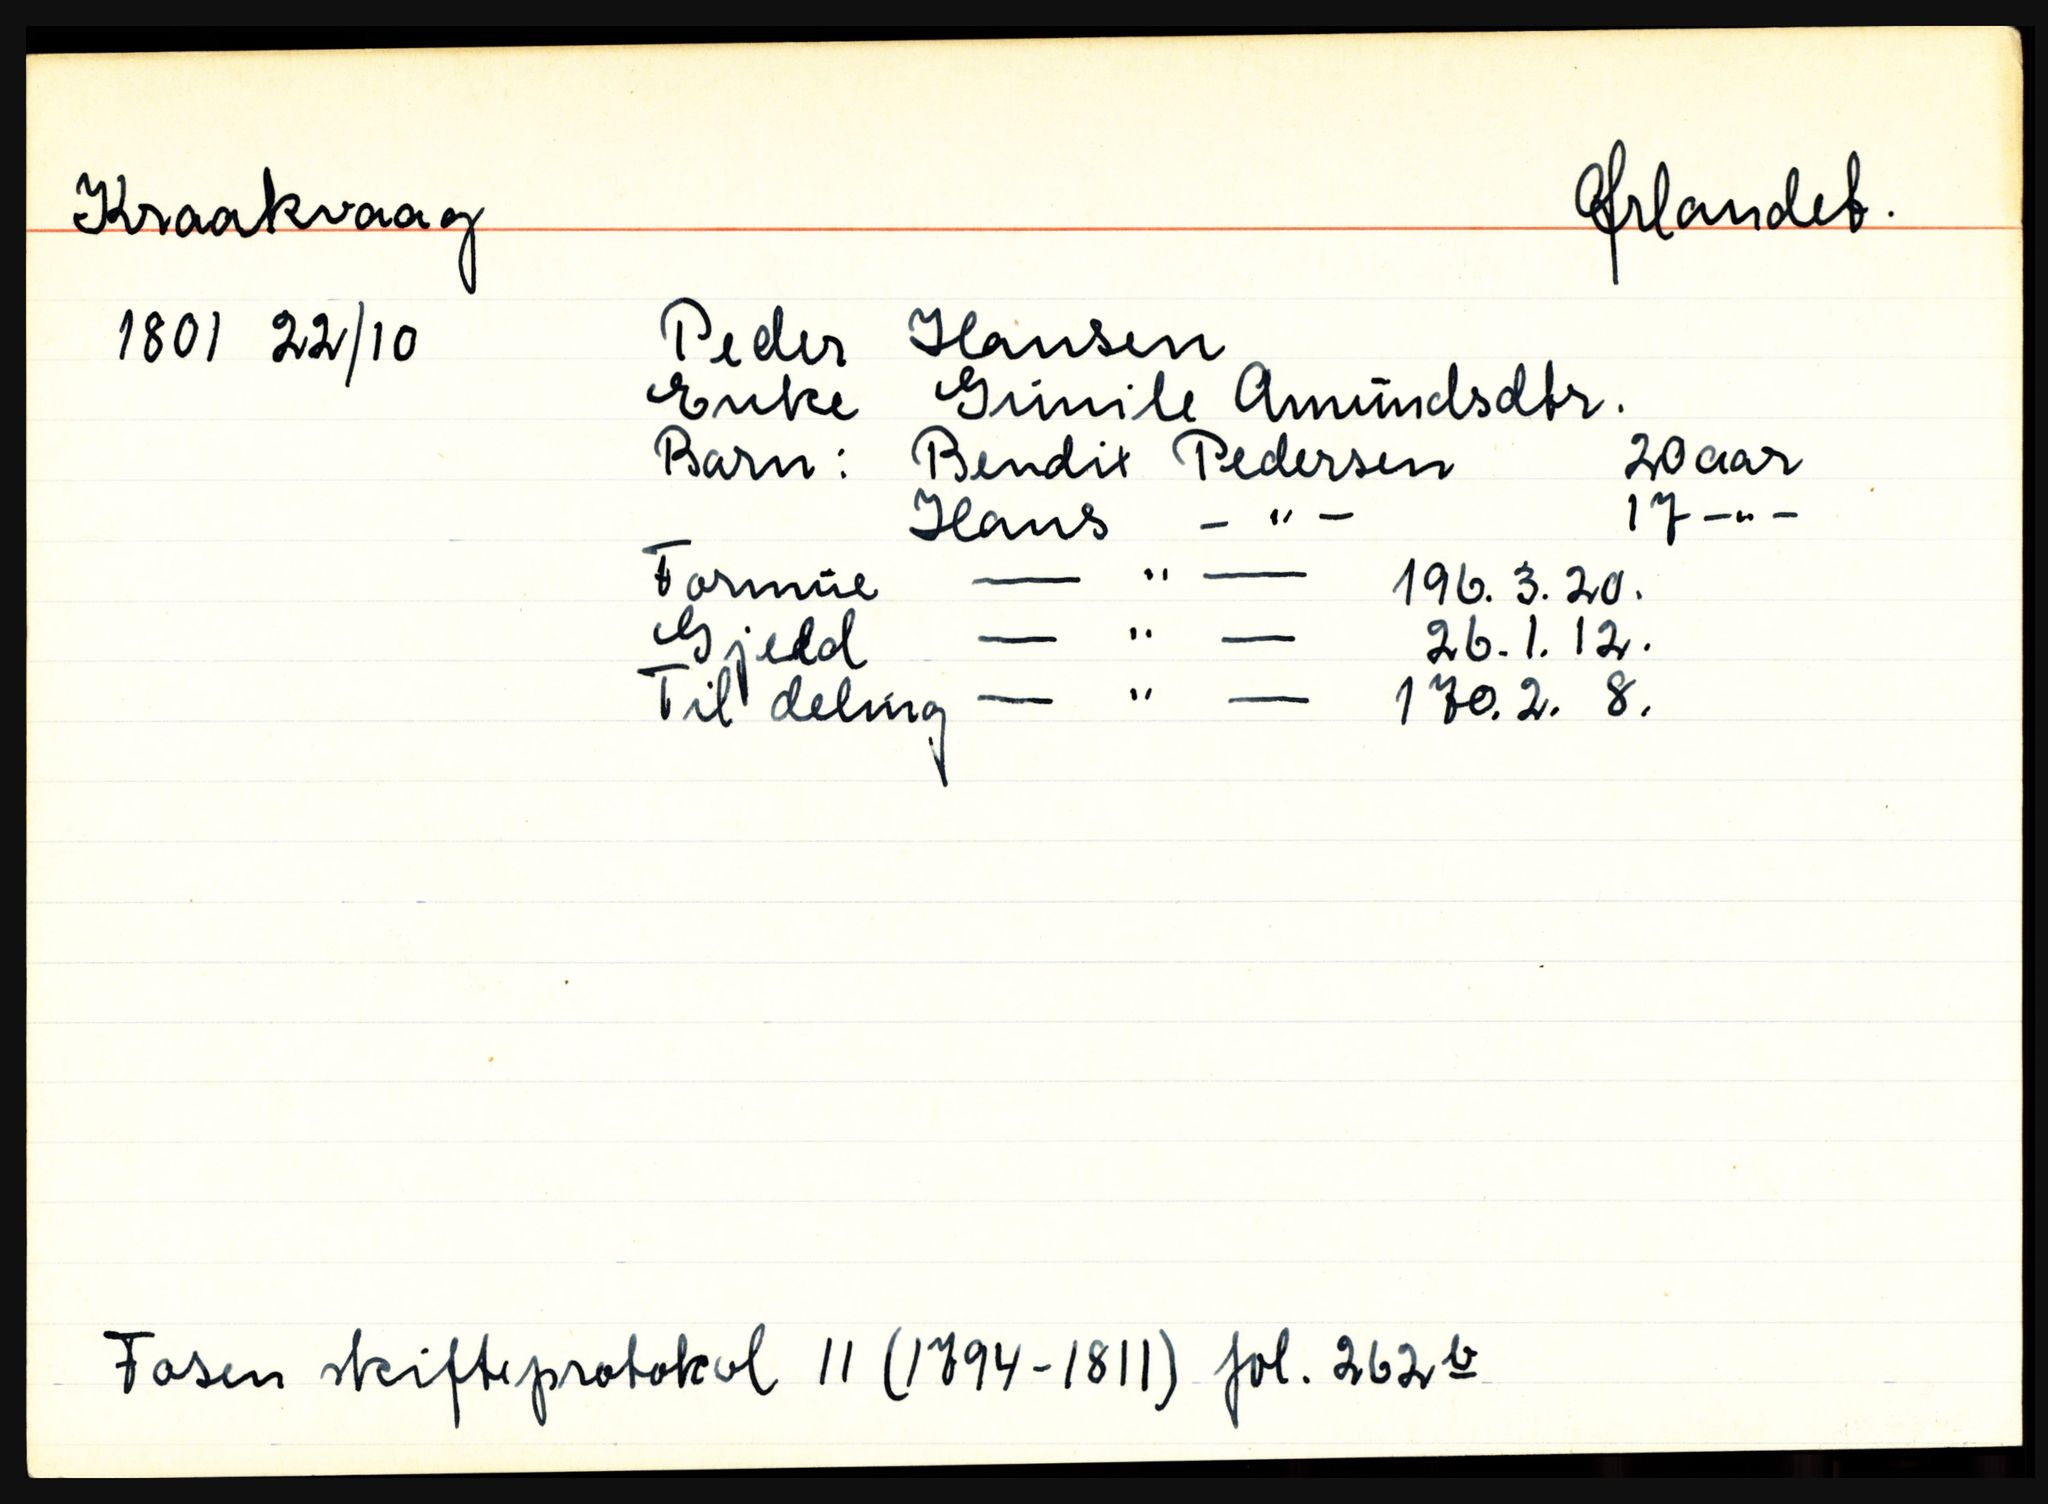 Kraakvaag Ørlandet.
1801 22/10 Peder Hansen
Enke Gunile Amundsdtr.
Barn: Bendix Pedersen 20 aar
Hans - " - 17 - " -
Formue — " — 196. 3. 20.
Gjeld — " — 26. 1. 12.
Til deling — " — 170. 2. 8.
Fosen skifteprotokol 11 (1794-1811) fol. 262 b